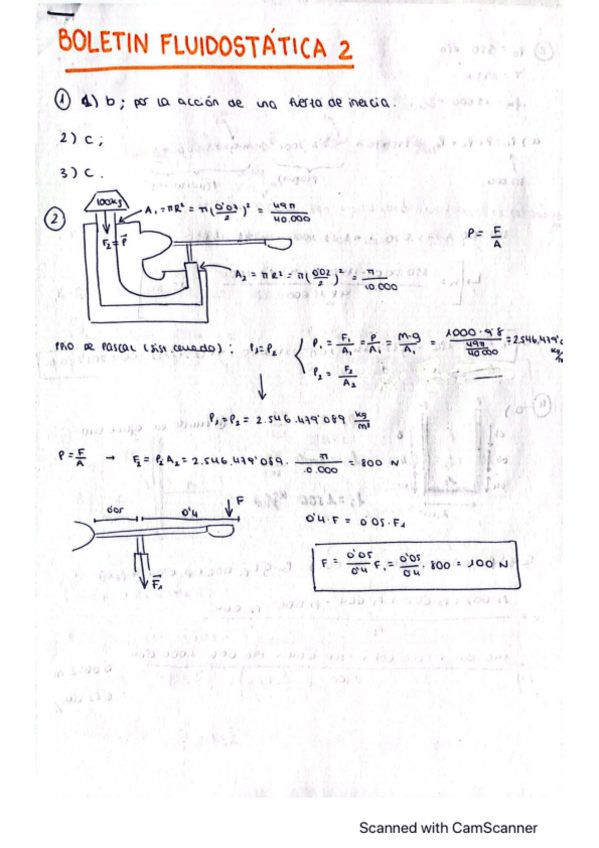 BOLETIN FLUIDOSTÁTICA 2
① 1) b; por la acción de una fuerza de inercia.
2) c;
3) c.
②
100kg
A₁ = πR² = π(0'07/2)² = 49π/40.000
F₂ = P
P = F/A
A₂ = πR² = π(0'02/2)² = π/10.000
PRO DE PASCAL (sist. cerrado): P₁=P₂
P₁ = F₁/A₁ = P/A₁ = m·g/A₁ = 1000·9'8/(49π/40000) = 2.546.479'0
P₂ = F₂/A₂
P₁=P₂ = 2.546.479'089 kg/m²
P = F/A → F₂ = P₂A₂ = 2.546.479'089 · π/10.000 = 800 N
0'05
0'4
F
0'4·F = 0'05·F₁
F₁
F = 0'05/0'4 F₁ = 0'05/0'4 · 800 = 100 N
Scanned with CamScanner